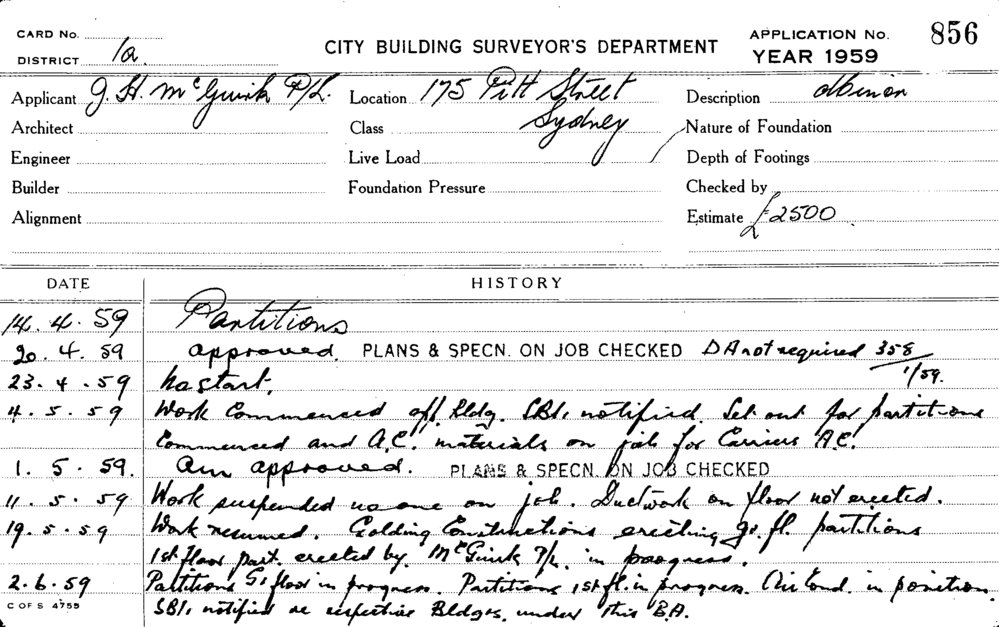 CARD No.
DISTRICT 1a
CITY BUILDING SURVEYOR'S DEPARTMENT
APPLICATION No. 856
YEAR 1959
Applicant J. H. McGuirk P/L. Location 175 Pitt Street Description
Architect Class Sydney Nature of Foundation
Engineer Live Load Depth of Footings
Builder Foundation Pressure Checked by
Alignment Estimate £2500
DATE HISTORY
14. 4. 59 Partitions
20. 4. 59 approved. PLANS & SPECN. ON JOB CHECKED DA not required 358/1/59.
23. 4. 59 no start.
4. 5. 59 Work Commenced Bldg. notified. Set out for partitions
Commenced and A.C. materials on job for Carriers A.C.
1. 5. 59. Am approved. PLANS & SPECN. ON JOB CHECKED
11. 5. 59 Work suspended no one on job. Ductwork on floor not erected.
19. 5. 59 Work resumed. Golding Constructions erecting Gr. fl. partitions
1st floor part. erected by McGuirk P/L. in progress.
2. 6. 59 Partitions Gr floor in progress. Partitions 1st fl. in progress. Air Cond. in position.
notified re respective Bldgs. under this B.A.
C OF S 4755